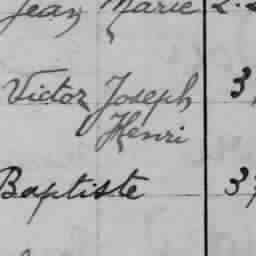 Jean Marie 2.
Victor Joseph 3
Henri
Baptiste 37